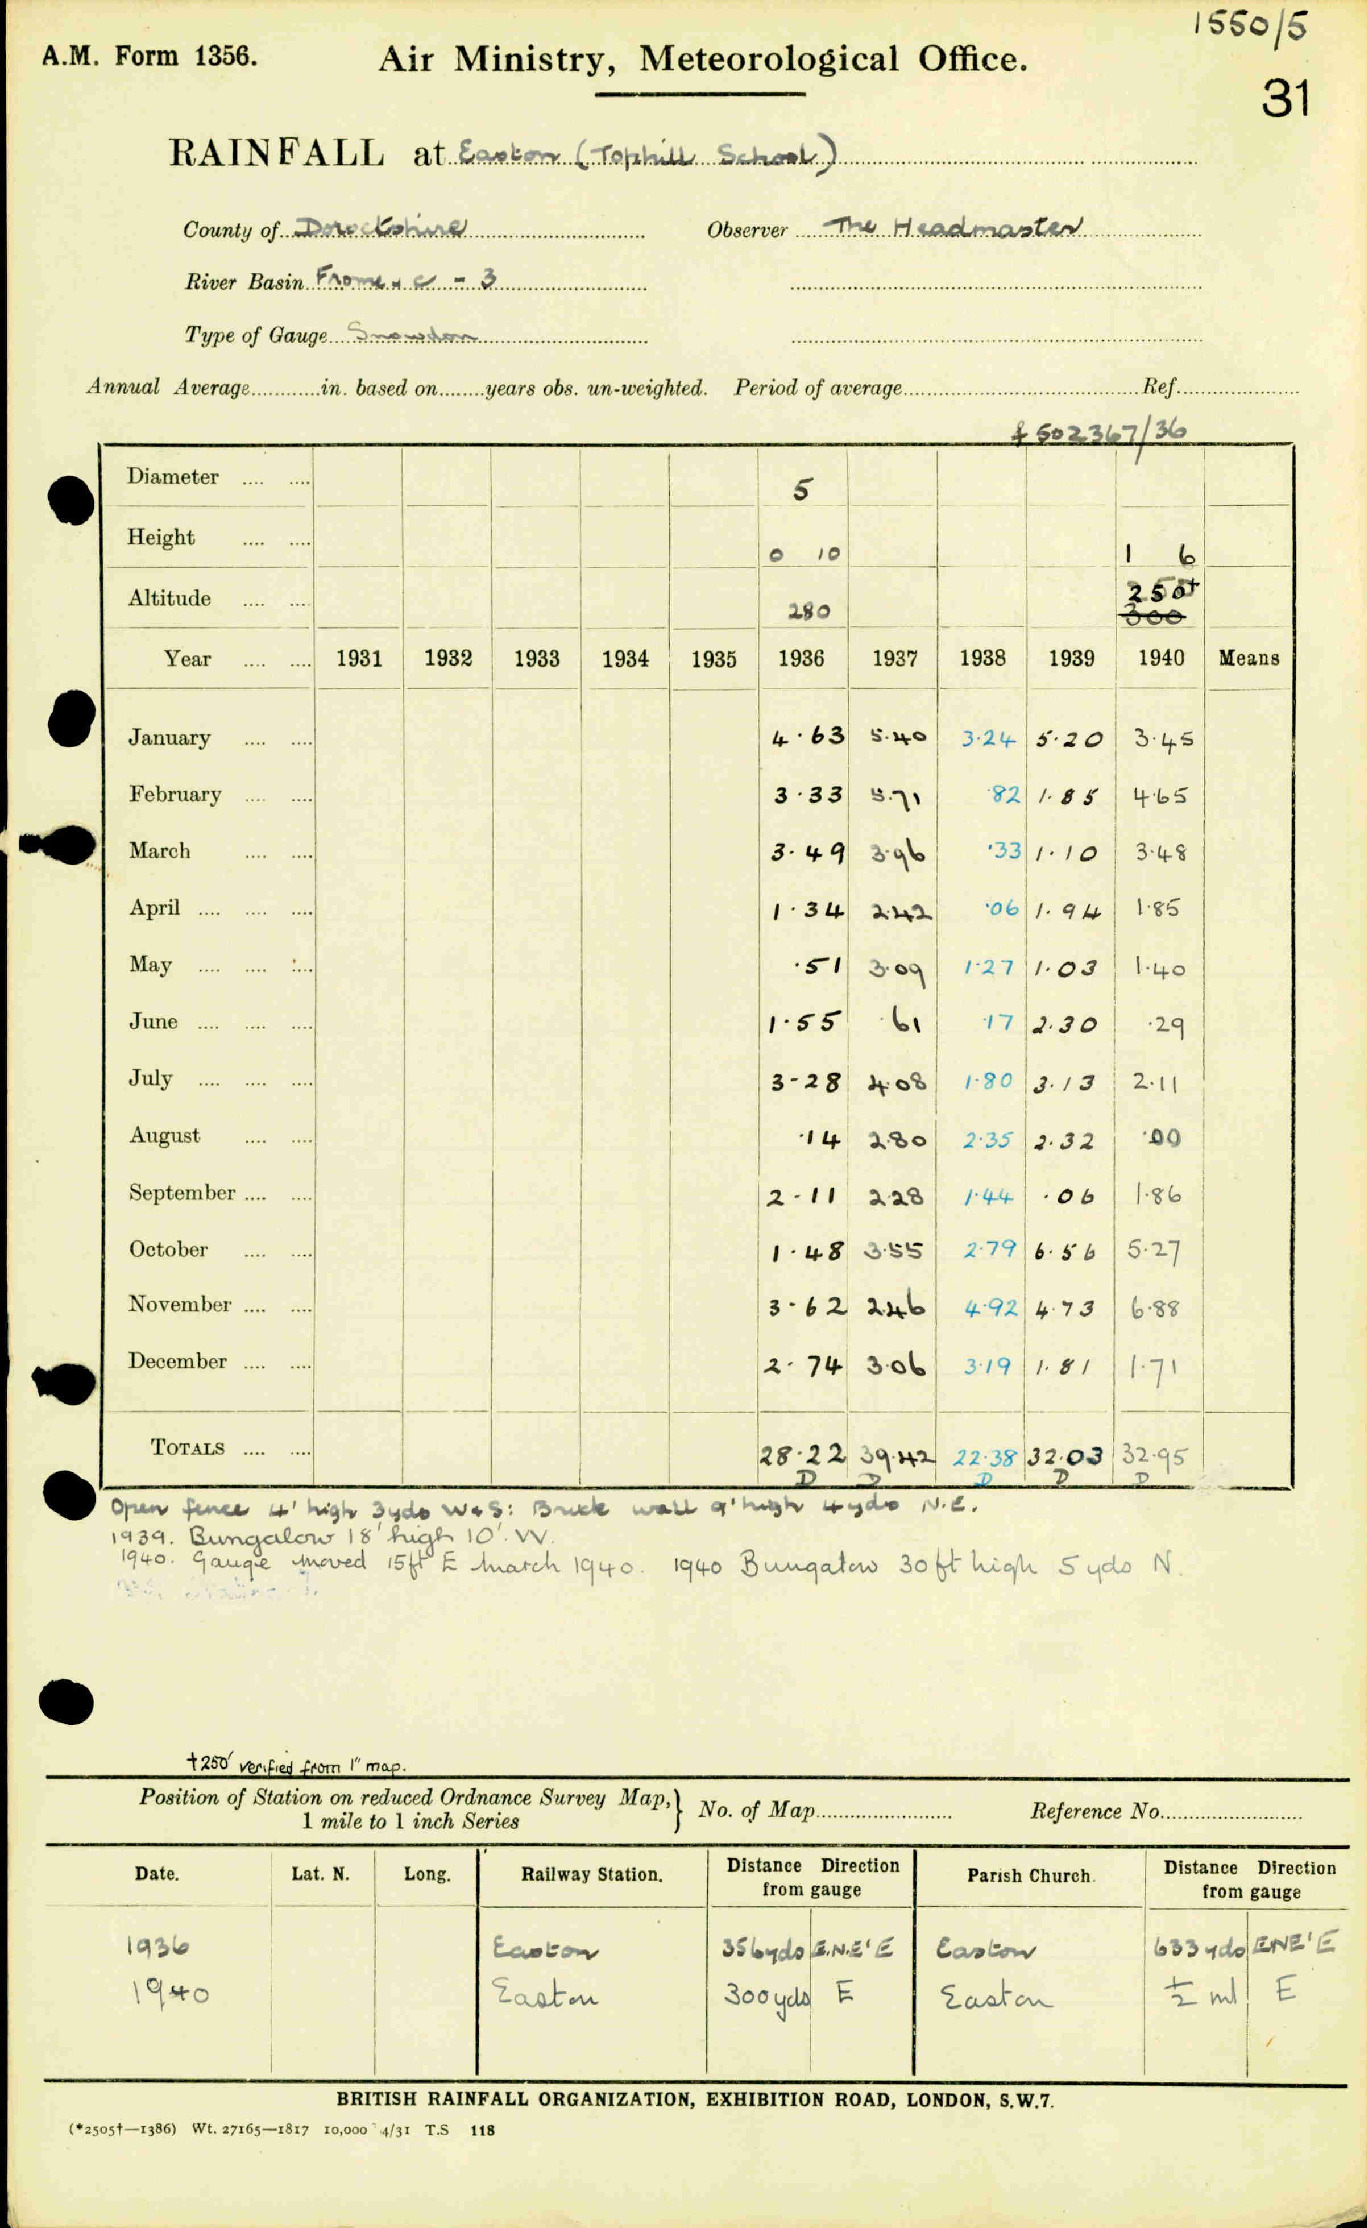 1550/5
A.M. Form 1356. Air Ministry, Meteorological Office.
31
RAINFALL at Easton (Tophill School)
County of Dorsetshire Observer The Headmaster
River Basin Frome &c - 3
Type of Gauge Snowdon
Annual Average............in. based on........years obs. un-weighted. Period of average.......................................Ref.....................
f 502367/36
Diameter .... .... 5
Height .... .... 0 10 1 6
Altitude .... .... 280 250† 300
Year .... .... 1931 1932 1933 1934 1935 1936 1937 1938 1939 1940 Means
January .... .... 4.63 5.40 3.24 5.20 3.45
February .... .... 3.33 5.71 .82 1.85 4.65
March .... .... 3.49 3.96 .33 1.10 3.48
April .... .... .... 1.34 2.42 .06 1.94 1.85
May .... .... .... .51 3.09 1.27 1.03 1.40
June .... .... .... 1.55 .61 .17 2.30 .29
July .... .... .... 3.28 4.08 1.80 3.13 2.11
August .... .... .14 2.80 2.35 2.32 .00
September .... .... 2.11 2.28 1.44 .06 1.86
October .... .... 1.48 3.55 2.79 6.56 5.27
November .... .... 3.62 2.46 4.92 4.73 6.88
December .... .... 2.74 3.06 3.19 1.81 1.71
TOTALS .... .... 28.22 39.42 22.38 32.03 32.95
D D D D D
Open fence 4' high 3yds W & S: Brick wall 9' high 4 yds N.E.
1939. Bungalow 18' high 10'. W.
1940. Gauge moved 15ft E March 1940. 1940 Bungalow 30 ft high 5 yds N.
†250' verified from 1" map.
Position of Station on reduced Ordnance Survey Map,} No. of Map........................ Reference No.........................
1 mile to 1 inch Series
Date. Lat. N. Long. Railway Station. Distance Direction from gauge Parish Church. Distance Direction from gauge
1936 Easton 356yds E.N.E'E Easton 633yds ENE'E
1940 Easton 300yds E Easton ½ ml E
BRITISH RAINFALL ORGANIZATION, EXHIBITION ROAD, LONDON, S.W.7.
(*2505†—1386) Wt. 27165—1817 10,000 4/31 T.S 118